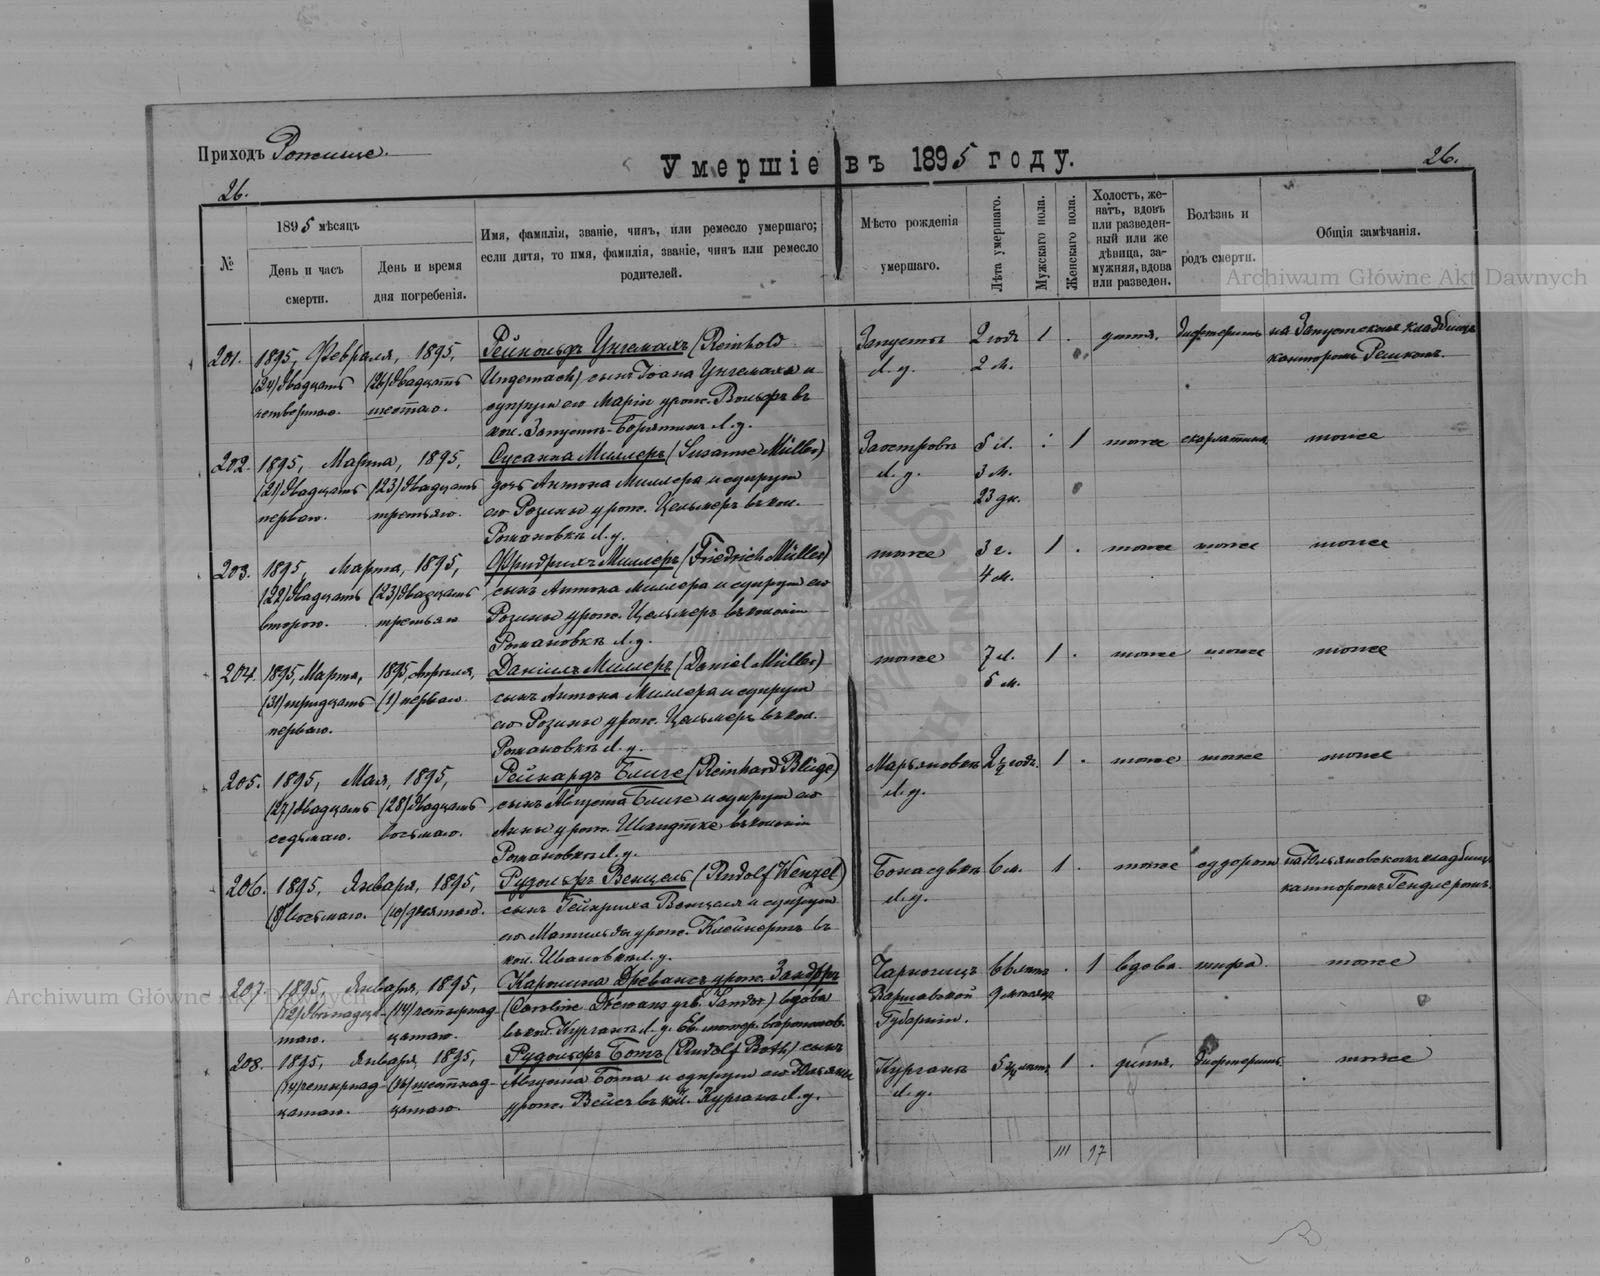 Приходъ Рожище.
Умершіе въ 1895 году.
26.
26.
№
1895 мѣсяцъ
День и часъ
смерти.
День и время
дня погребенія.
Имя, фамилія, званіе, чинъ, или ремесло умершаго;
если дитя, то имя, фамилія, званіе, чинъ или ремесло
родителей.
Мѣсто рожденія
умершаго.
Лѣта умершаго.
Мужскаго пола.
Женскаго пола.
Холостъ, же-
натъ, вдовъ
или разведен-
ный или же
дѣвица, за-
мужняя, вдова
или разведен.
Болѣзнь и
родъ смерти.
Общія замѣчанія.
Archiwum Główne Akt Dawnych
201. 1895, Февраля, 1895, Рейнольдъ Унгемахъ (Reinhold Запусты 2 года 1 . дитя. дифтеритъ на Запустскомъ кладбищѣ
(24) двадцать (26) двадцать Ungemach) сынъ Іоана Унгемаха и Л. у. 2 м. канторомъ
четвертаго. шестаго. супруги его Маріи урож. Вольфъ въ
кол. Запусты-Борятинъ Л. у.
202. 1895, Марта, 1895, Сусанна Миллеръ (Susanne Müller) Заостровъ 5 л. . 1 тоже скарлатина тоже
(21) двадцать (23) двадцать дочь Антона Миллера и супруги Л. у. 3 м.
перваго. третьяго. его Розины урож. Цельмеръ въ кол. 23 дн.
Романовкѣ Л. у.
203. 1895, Марта, 1895, Фридрихъ Миллеръ (Friedrich Müller) тоже 3 г. 1 . тоже тоже тоже
(22) двадцать (23) двадцать сынъ Антона Миллера и супруги его 4 м.
втораго. третьяго Розины урож. Цельмеръ въ колоніи
Романовкѣ Л. у.
204. 1895, Марта, 1895, Апрѣля, Даніилъ Миллеръ (Daniel Müller) тоже 7 л. 1 . тоже тоже тоже
(31) тридцать (1) перваго сынъ Антона Миллера и супруги 5 м.
перваго. его Розины урож. Цельмеръ въ кол.
Романовкѣ Л. у.
205. 1895, Мая, 1895, Рейнардъ Блиге (Reinhard Blüge) Марьяновка 2½ года. 1 . тоже тоже тоже
(27) двадцать (28) двадцать сынъ Августа Блиге и супруги его Л. у.
седьмаго. восьмаго. Анны урож. въ колоніи
Романовкѣ Л. у.
206. 1895, Января, 1895, Рудольфъ Венцель (Rudolf Wenzel) 6 м. 1 . тоже кладбищѣ
(8) восьмаго. (10) десятаго. сынъ Гейнриха Венцеля и супруги Л. у. канторомъ Гендлеромъ.
его Матильды урож. Клейнертъ въ
кол. Ивановкѣ Л. у.
207. 1895, Января, 1895, Каролина Древансъ урож. Зандоръ 66 лѣтъ . 1 вдова тифа тоже
(12) двѣнадца- (14) четырнад- (Caroline Drewans geb. Sandor) вдова Варшавской 9 мѣсяцевъ
таго. цатаго. въ кол. Курганъ Л. у. Губерніи.
208. 1895, Января, 1895, Рудольфъ Ботъ (Rudolf Both) сынъ Курганъ 5¾ лѣтъ 1 . дитя. дифтеритъ тоже
(14) четырнад- (16) шестнад- Августа Бота и супруги его Юльяны Л. у.
цатаго. цатаго. урож. Вейсъ въ кол. Курганъ Л. у.
111 97
Archiwum Główne Akt Dawnych